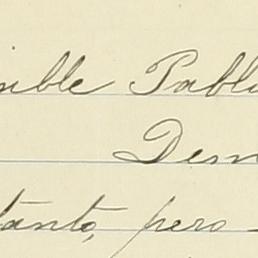 nible Pabl
Dem
tanto, pero